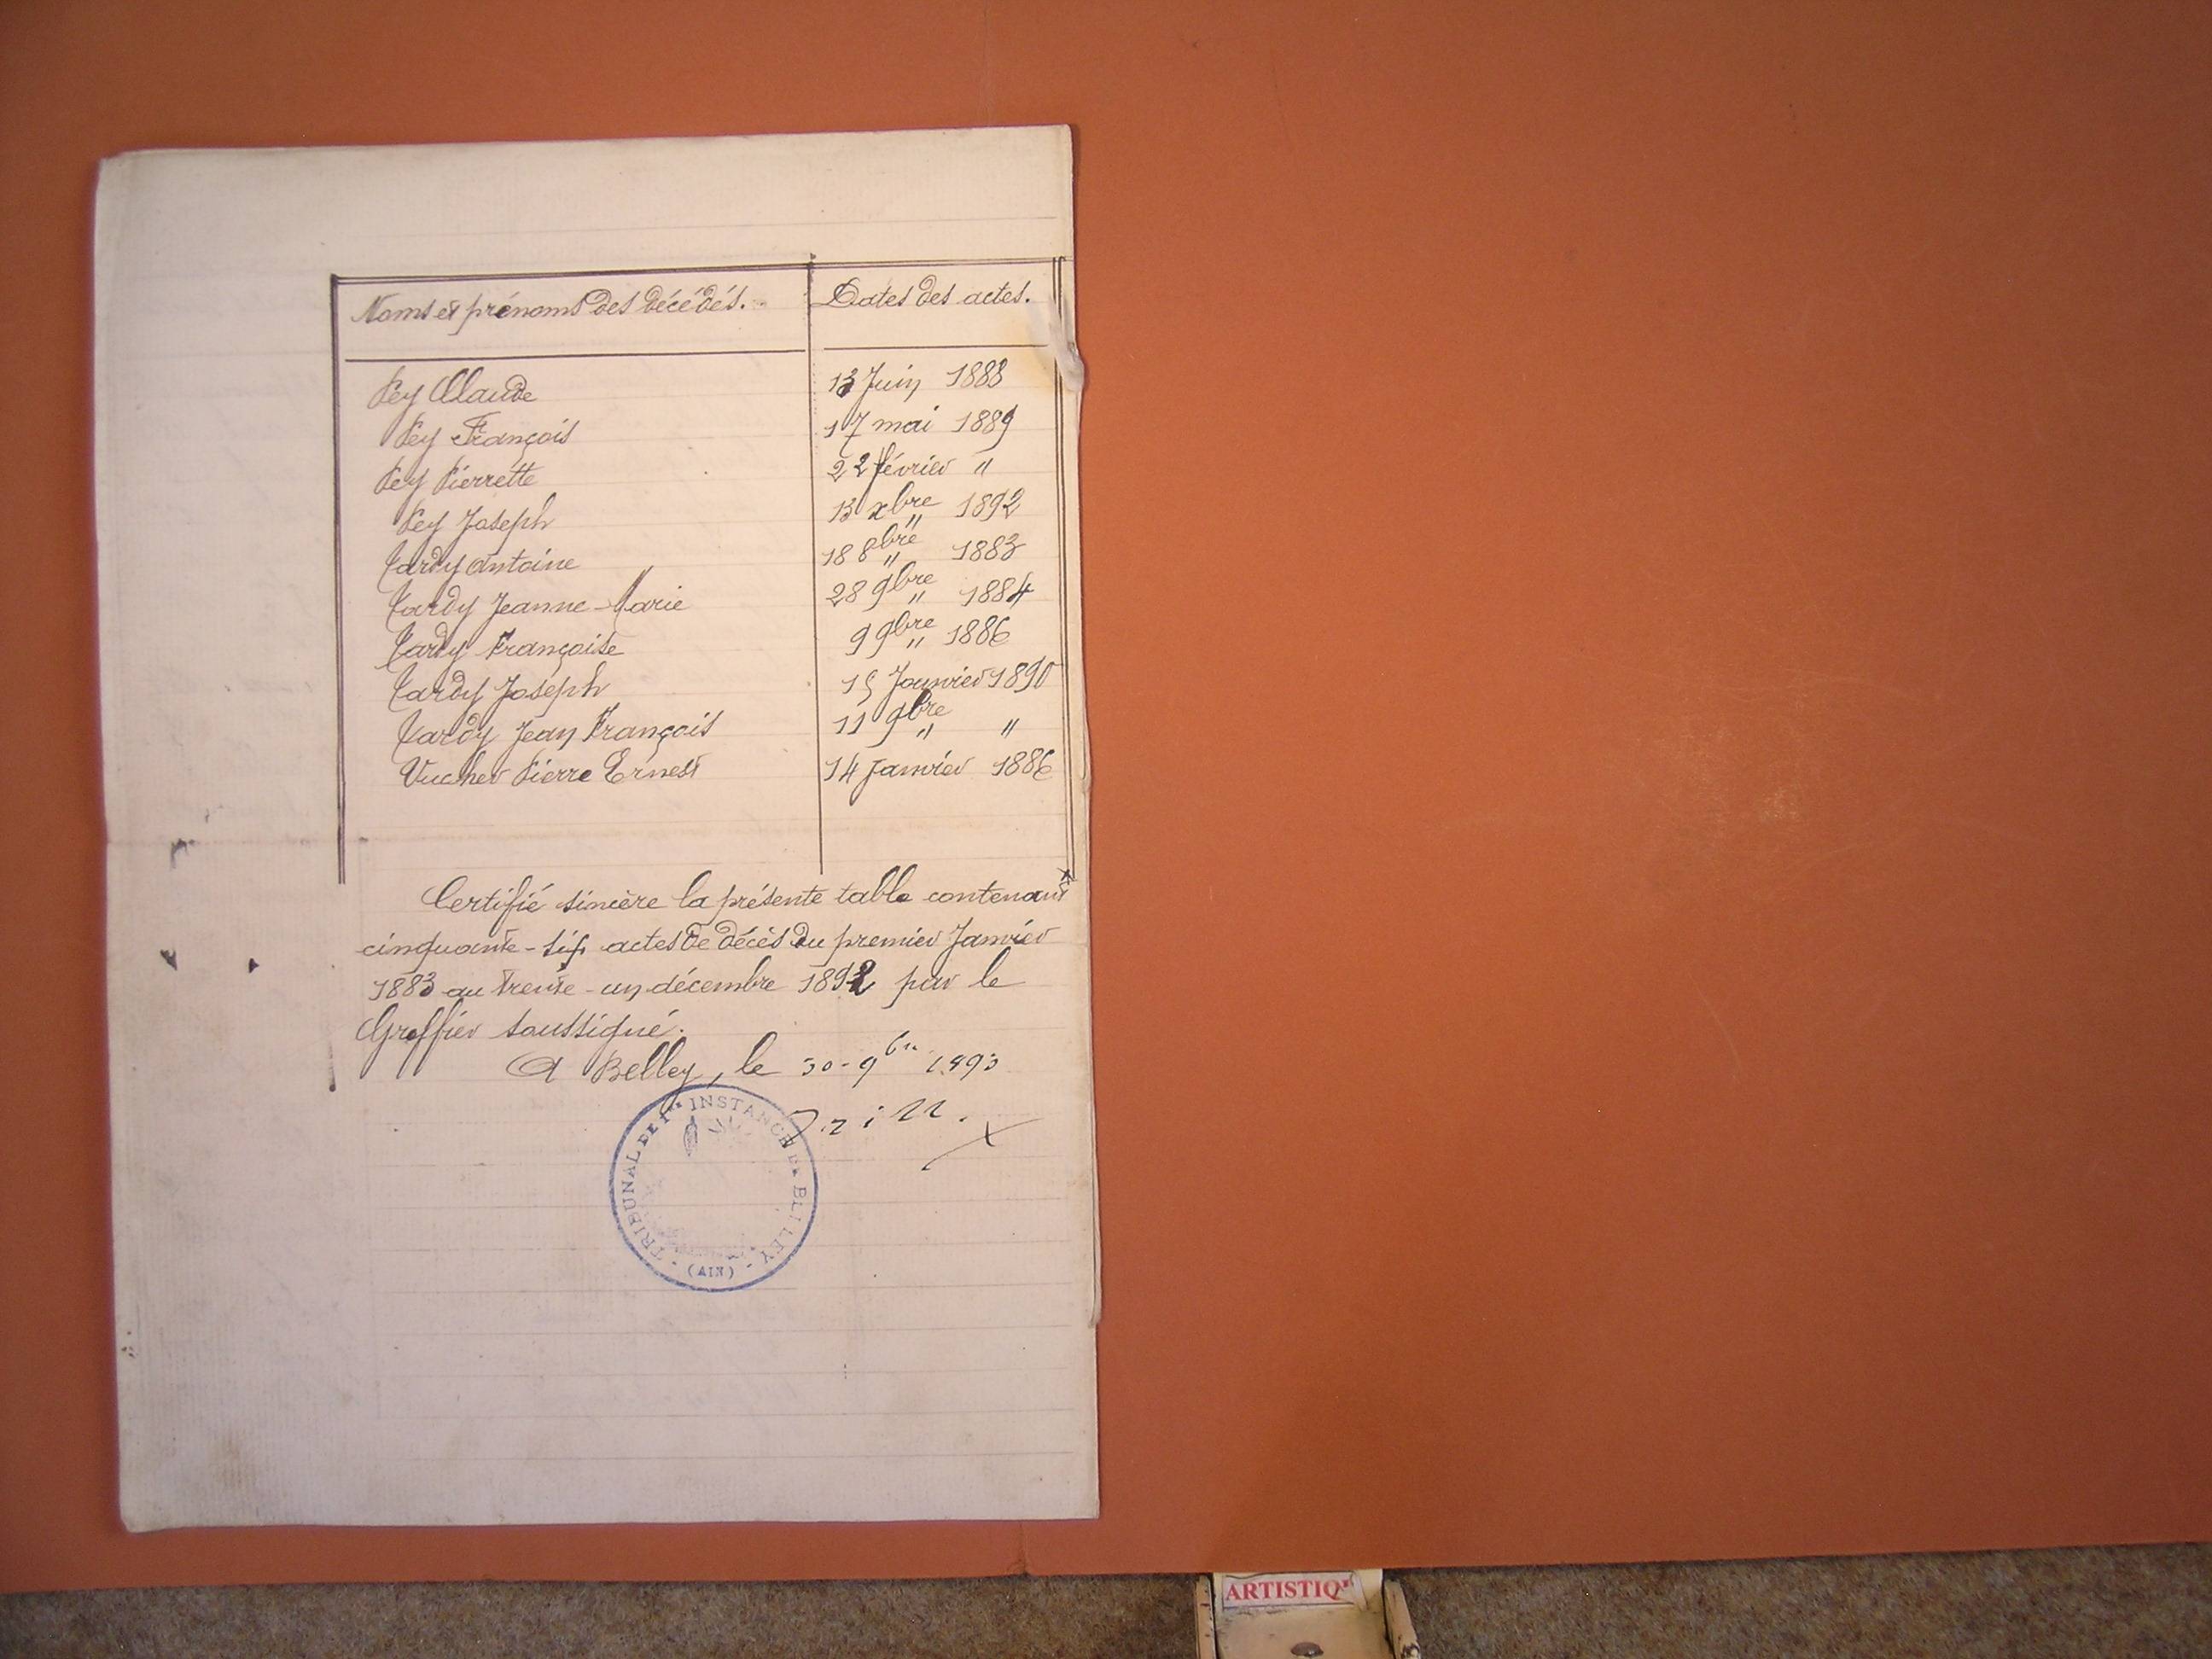 Noms et prénoms des décédés. Dates des actes.
Pey Claude 13 Juin 1888
Pey François 17 mai 1889
Pey Pierrette 22 février "
Pey Joseph 13 xbre 1892
Tardy Antoine 18 8bre 1883
Tardy Jeanne-Marie 28 9bre 1884
Tardy Françoise 9 9bre 1886
Tardy Joseph 15 Janvier 1890
Tardy Jean François 11 9bre "
Vucher Pierre Ernest 14 Janvier 1886
Certifié sincère la présente table contenant
cinquante-six actes de décès du premier Janvier
1883 au trente-un décembre 1892 par le
Greffier soussigné.
A Belley, le 30 - 9bre 1893
TRIBUNAL DE 1re INSTANCE DE BELLEY
(AIN)
ARTISTIQ